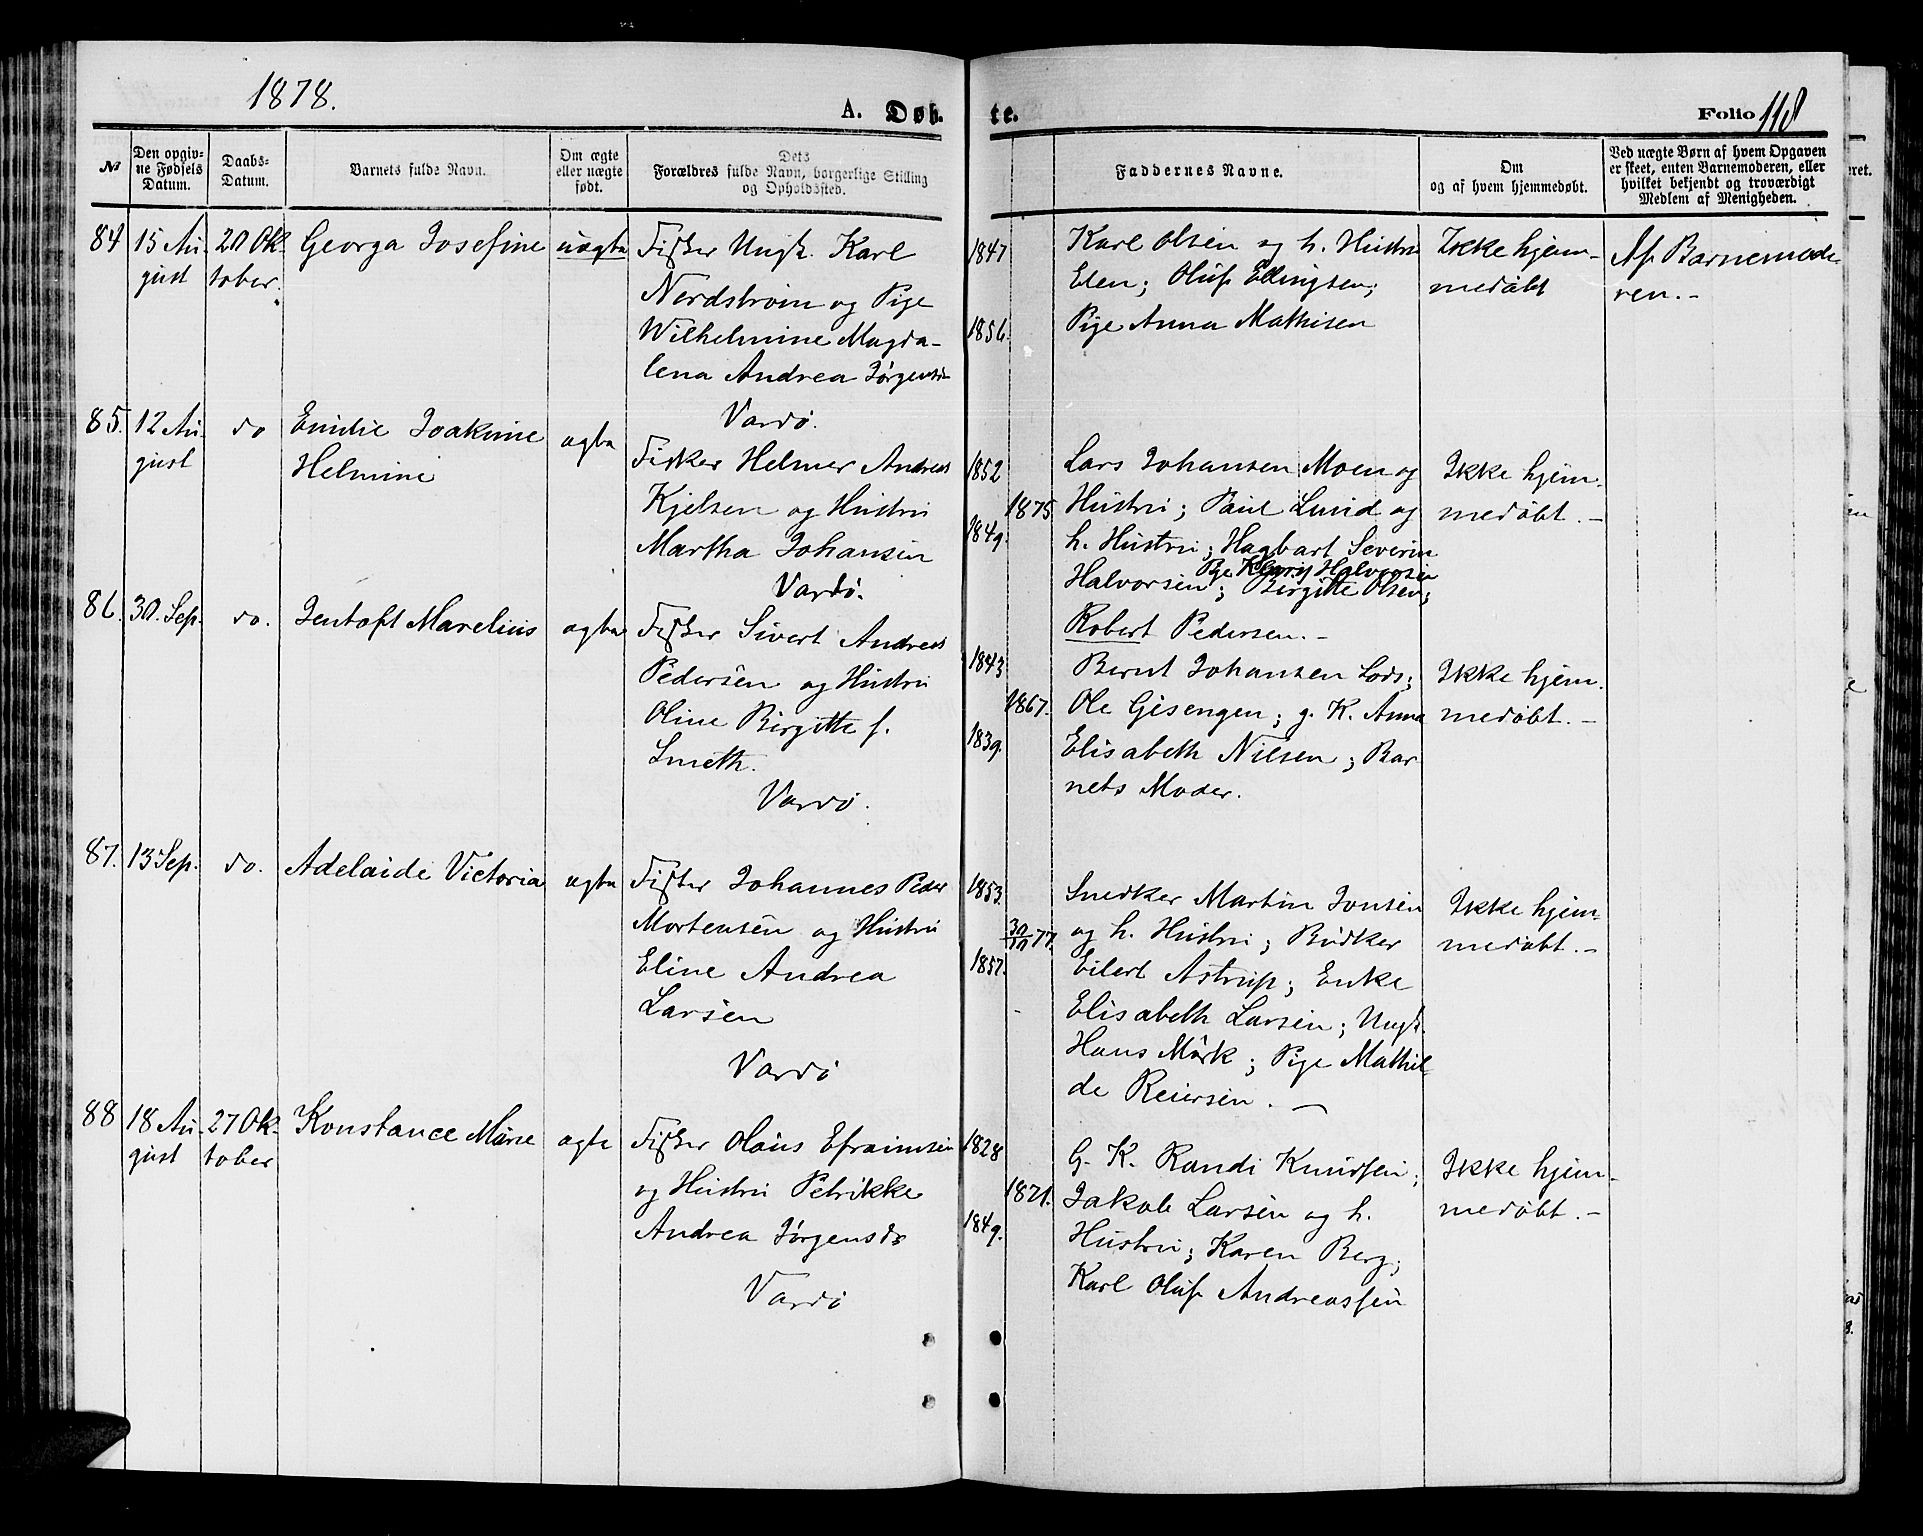 1878.
A. Døb-
te.
Folio 118
№
Den opgiv-
ne Fødsels
Datum.
Daabs-
Datum.
Barnets fulde Navn.
Om ægte
eller uægte
født.
Dets
Forældres fulde Navn, borgerlige Stilling
og Opholdssted.
Faddernes Navne.
Om
og af hvem hjemmedøbt.
Ved uægte Børn af hvem Opgaven
er skeet, enten Barnemoderen, eller
hvilket bekjendt og troværdigt
Medlem af Menigheden.
84 15 Au-
gust
20 Ok-
tober.
Georga Josefine
uægte
Fisker Ungk. Karl
Nordstrøm og Pige
Wilhelmine Magda-
lena Andrea Jørgensd
Vardø.
1847
1856.
Karl Olsen og h. Hustru
Elen; Oluf Ellingsen;
Pige Anna Mathisen
Ikke hjem-
medøbt
Af Barnemode-
ren.-
85. 12 Au-
gust
do
Emilie Joakime
Helmine
ægte
Fisker Helmer Andreas
Kjelsen og Hustru
Martha Johansen
Vardø.
1852
1849.
1875
Lars Johansen Moen og
Hustru; Paul Lund og
h. Hustru; Hagbart Severin
Pige Halvorsen
Halvorsen; Birgitte Olsen;
Robert Pedersen.-
Ikke hjem-
medøbt.-
86. 30. Sep. do.
Jentoft Marelius
ægte
Fisker Sivert Andreas
Pedersen og Hustru
Oline Birgitte f.
Smeth.
Vardø.
1843
1839.
1867.
Bernt Johansen Lods;
Ole Gisengen; g. K. Anna
Elisabeth Nilsen; Bar
nets Moder.
Ikke hjem-
medøbt.-
87. 13 Sep. do.
Adelaide Victoria
ægte
Fisker Johannes Peder
Mortensen og Hustru
Eline Andrea
Larsen
Vardø
1853.
1857.
30/10 77
Snedker Martin Jonsen
og h. Hustru; Bødker
Eilert Astrup; Enke
Elisabeth Larsen; Ungk.
Hans Mørk; Pige Mathil-
de Reiersen.-
Ikke hjem-
medøbt.-
88 18 Au-
gust
27 Ok-
tober
Konstance Marie
ægte
Fisker Olaus Efraimsen
og Hustru Petrikke
Andrea Jørgensdr
Vardø
1828
1849.
1871.
G. K. Randi Knudsen;
Jakob Larsen og h.
Hustru; Karen Berg;
Karl Oluf Andreassen
Ikke hjem-
medøbt.-